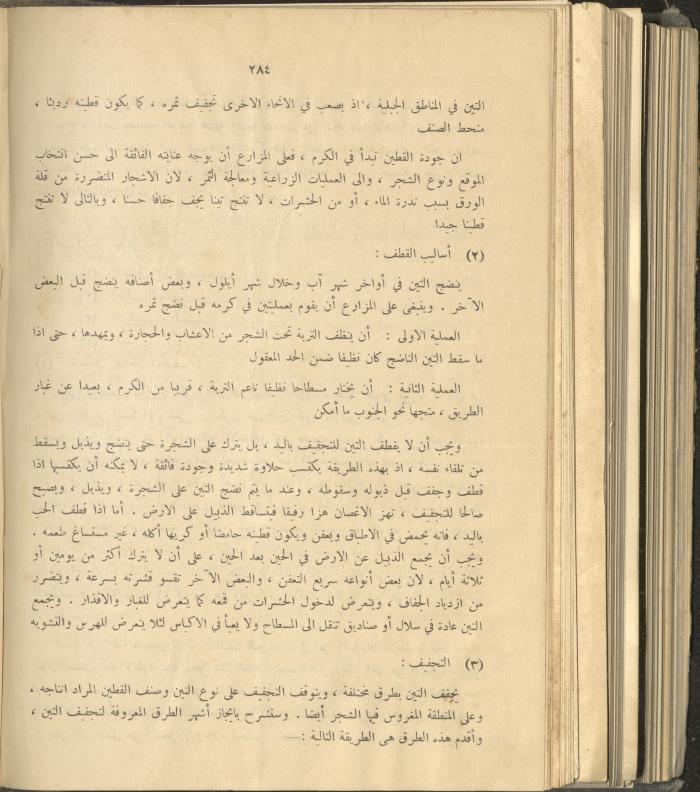 ٢٨٤
التين في المناطق الجبلية ، اذ يصعب في الانحاء الاخرى تجفيف ثمره ، كما يكون قطينه رديئا ،
منحط الصنف
ان جودة القطين تبدأ في الكرم ، فعلى المزارع أن يوجه عنايته الفائقة الى حسن انتخاب
الموقع ونوع الشجر ، والى العمليات الزراعية ومعالجة الثمر ، لان الاشجار المتضررة من قلة
الورق بسبب ندرة الماء ، أو من الحشرات ، لا تنتج تينا يجف جفافا حسنا ، وبالتالى لا تنتج
قطينا جيدا
(٢) أساليب القطف :
ينضج التين في أواخر شهر آب وخلال شهر أيلول ، وبعض أصنافه ينضج قبل البعض
الآخر . وينبغى على المزارع أن يقوم بعمليتين في كرمه قبل نضج ثمره
العملية الاولى : أن ينظف التربة تحت الشجر من الاعشاب والحجارة ، ويمهدها ، حتى اذا
ما سقط التين الناضج كان نظيفا ضمن الحد المعقول
العملية الثانية : أن يختار مسطاحا نظيفا ناعم التربة ، قريبا من الكرم ، بعيدا عن غبار
الطريق ، متجها نحو الجنوب ما أمكن
ويجب أن لا يقطف التين للتجفيف باليد ، بل يترك على الشجرة حتى ينضج ويذبل ويسقط
من تلقاء نفسه ، اذ بهذه الطريقة يكتسب حلاوة شديدة وجودة فائقة ، لا يمكنه أن يكتسبها اذا
قطف وجفف قبل ذبوله وسقوطه ، وعند ما يتم نضج التين على الشجرة ، ويذبل ، ويصبح
صالحا للتجفيف ، تهز الاغصان هزا رفيقا فيتساقط الذبيل على الارض . أما اذا قطف الحب
باليد ، فانه يحمض في الاطباق ويعفن ويكون قطينه حامضا أو كريها أكله ، غير مستساغ طعمه .
ويجب أن يجمع الذبيل عن الارض في الحين بعد الحين ، على أن لا يترك أكثر من يومين أو
ثلاثة أيام ، لان بعض أنواعه سريع التعفن ، والبعض الآخر تقسو قشرته بسرعة ، ويتضرر
من ازدياد الجفاف ، ويتعرض لدخول الحشرات من قمعه كما يتعرض للغبار والاقذار . ويجمع
التين عادة في سلال أو صناديق تنقل الى المسطاح ولا يعبأ في الاكياس لئلا يتعرض للهرس والتشويه
(٣) التجفيف :
يجفف التين بطرق مختلفة ، ويتوقف التجفيف على نوع التين وصنف القطين المراد انتاجه ،
وعلى المنطقة المغروس فيها الشجر أيضا . وسنشرح بايجاز أشهر الطرق المعروفة لتجفيف التين ،
وأقدم هذه الطرق هى الطريقة التالية :—